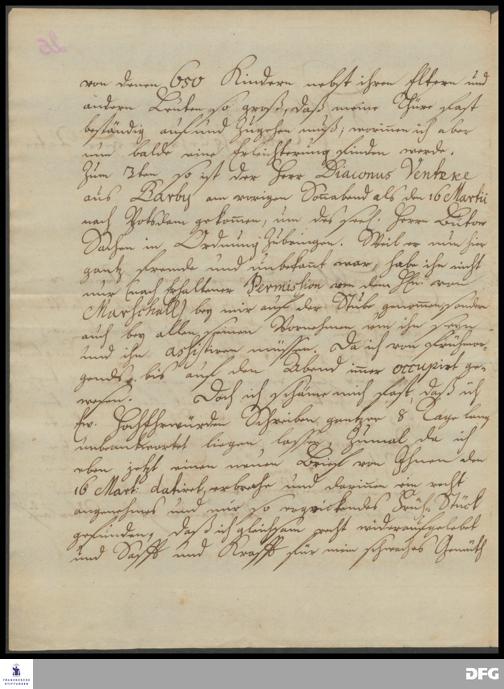 von denen 650 Kindern nebst ihren Eltern und
andern Leuten so groß, daß meine Thüre fast
beständig auf und zugehen muß; worinnen ich aber
nun balde eine Erleichterung finden werde.
Zum 3ten so ist der Herr Diaconus Ventzke
aus Barby am vorigen Sonabend als den 16 Martii
nach Potsdam gekommen, um des seel. Herrn
Sachen in Ordnung zu bringen. Weil er nun hier
gantz fremde und unbekannt war, habe ihn nicht
nur (nach erhaltener Permission von dem Hn von
Marschall) bey mir auf der Stube genommen, sondern
auch bey allen seinen Vornehmen um ihn seyn
und ihn assistiren müssen. Da ich von frühmor-
gends bis auf den Abend immer occupirt ge-
wesen. Doch ich schäme mich fast, daß ich
Ew. HochEhrwürden Schreiben gantzer 8 Tage lang
unbeantwortet liegen lassen, zumal da ich
eben jetzt einen neuen Brief von Ihnen den
16 Mart: datiret, erbreche und darinnen ein recht
angenehmes und mir so erquickendes Früh-Stück
gefunden, daß ich gleichsam recht wider aufgelebet
und Safft und Krafft für mein schwaches Gemüth
FRANCKESCHE
STIFTUNGEN
DFG